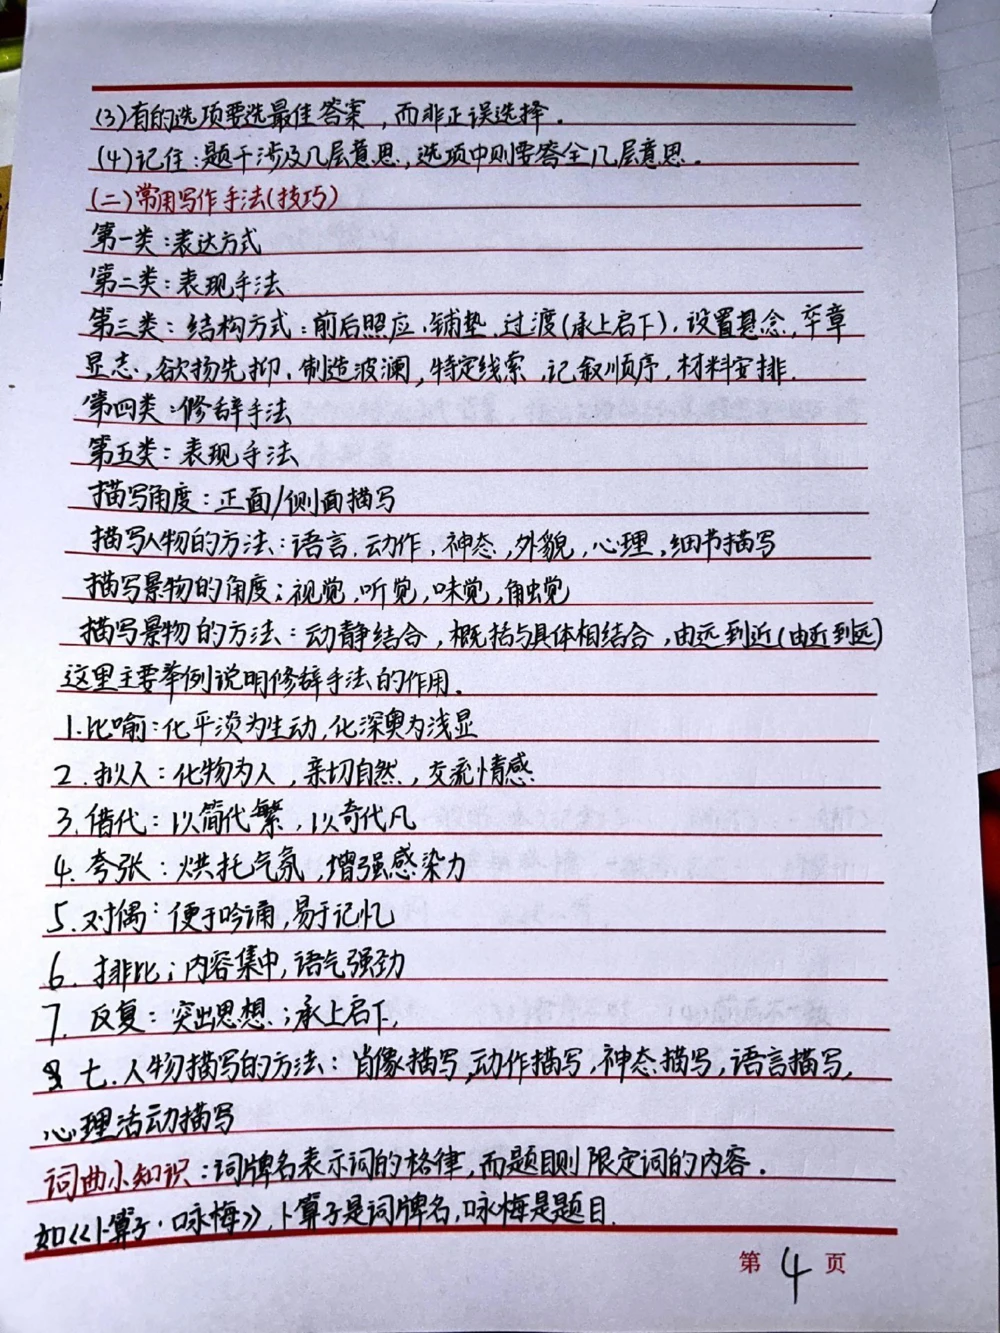 (3)有的选项要选最佳答案，而非正误选择.
(4)记住:题干涉及几层意思,选项中则要答全几层意思.
(二)常用写作手法(技巧)
第一类:表达方式
第二类:表现手法
第三类:结构方式:前后照应、铺垫、过渡(承上启下)、设置悬念、卒章
显志、欲扬先抑、制造波澜,特定线索,记叙顺序,材料安排.
第四类:修辞手法
第五类:表现手法
描写角度:正面/侧面描写
描写人物的方法:语言,动作,神态,外貌,心理,细节描写
描写景物的角度;视觉,听觉,味觉,触觉
描写景物的方法:动静结合,概括与具体相结合,由远到近(由近到远)
这里主要举例说明修辞手法的作用.
1.比喻:化平淡为生动,化深奥为浅显
2.拟人:化物为人,亲切自然,交流情感
3.借代:以简代繁,以奇代凡
4.夸张:烘托气氛,增强感染力
5.对偶:便于吟诵,易于记忆
6.排比;内容集中,语气强劲
7.反复:突出思想;承上启下,
七.人物描写的方法:肖像描写,动作描写,神态描写,语言描写,
心理活动描写
词曲小知识:词牌名表示词的格律,而题目则限定词的内容.
如《卜算子·咏梅》,卜算子是词牌名,咏梅是题目.
第4页